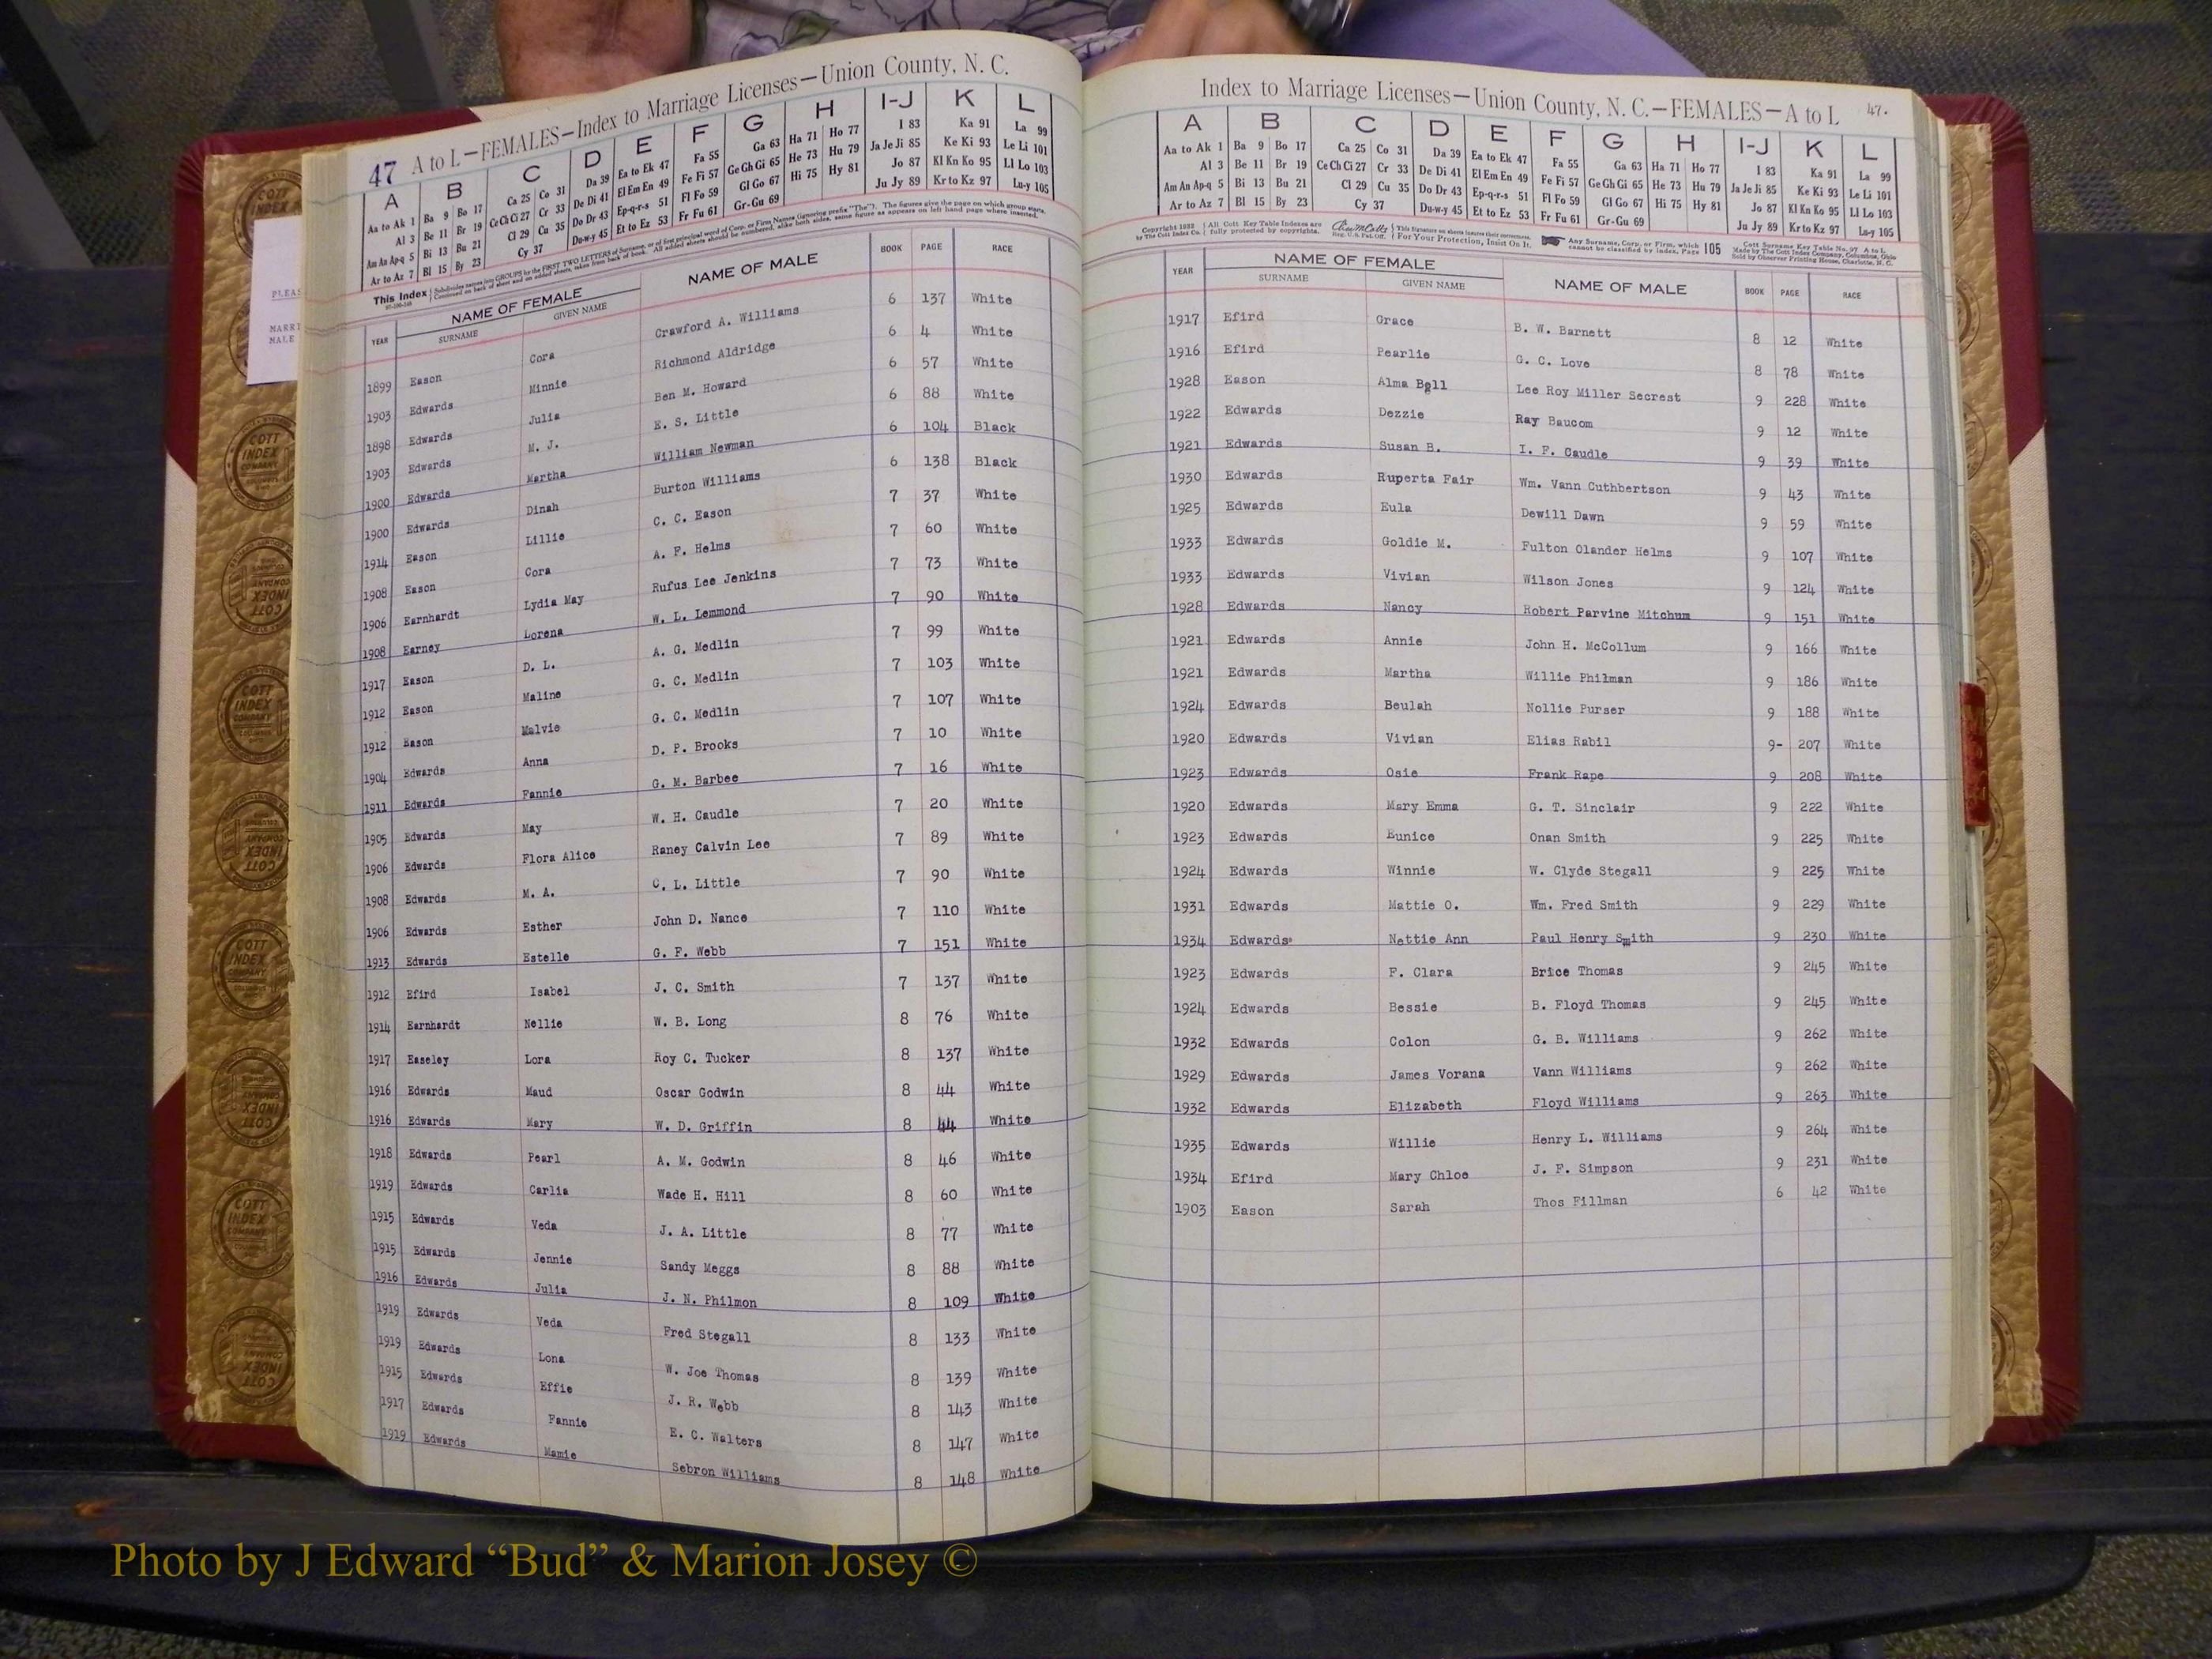 47 A to L—FEMALES—Index to Marriage Licenses—Union County, N. C.
A B C D E F G H I-J K L
Aa to Ak 1 Ba 9 Bo 17 Ca 25 Co 31 Da 39 Ea to Ek 47 Fa 55 Ga 63 Ha 71 Ho 77 I 83 Ka 91 La 99
Al 3 Be 11 Br 19 Ce Ch Ci 27 Cr 33 De Di 41 El Em En 49 Fe Fi 57 Ge Gh Gi 65 He 73 Hu 79 Ja Je Ji 85 Ke Ki 93 Le Li 101
Am An Ap-q 5 Bi 13 Bu 21 Cl 29 Cu 35 Do Dr 43 Ep-q-r-s 51 Fl Fo 59 Gl Go 67 Hi 75 Hy 81 Jo 87 Kl Kn Ko 95 Ll Lo 103
Ar to Az 7 Bl 15 By 23 Cy 37 Du-w-y 45 Et to Ez 53 Fr Fu 61 Gr-Gu 69 Ju Jy 89 Kr to Kz 97 Lu-y 105
This Index Subdivides names into GROUPS by the FIRST TWO LETTERS of Surname, or of first principal word of Corp. or Firm Names (ignoring prefix "The"). The figures give the page on which group starts.
Continued on back of sheet and on added sheets, taken from back of book. All added sheets should be numbered, alike both sides, same figure as appears on left hand page where inserted.
YEAR NAME OF FEMALE NAME OF MALE BOOK PAGE RACE
SURNAME GIVEN NAME
1899 Eason Cora Crawford A. Williams 6 137 White
1903 Edwards Minnie Richmond Aldridge 6 4 White
1898 Edwards Julia Ben M. Howard 6 57 White
1903 Edwards M. J. E. S. Little 6 88 White
1900 Edwards Martha William Newman 6 104 Black
1900 Edwards Dinah Burton Williams 6 138 Black
1914 Eason Lillie C. C. Eason 7 37 White
1908 Eason Cora A. F. Helms 7 60 White
1906 Earnhardt Lydia May Rufus Lee Jenkins 7 73 White
1908 Earney Lorena W. L. Lemmond 7 90 White
1917 Eason D. L. A. G. Medlin 7 99 White
1912 Eason Maline G. C. Medlin 7 103 White
1912 Eason Malvie G. C. Medlin 7 107 White
1904 Edwards Anna D. P. Brooks 7 10 White
1911 Edwards Fannie G. M. Barbee 7 16 White
1905 Edwards May W. H. Caudle 7 20 White
1906 Edwards Flora Alice Raney Calvin Lee 7 89 White
1908 Edwards M. A. C. L. Little 7 90 White
1906 Edwards Esther John D. Nance 7 110 White
1913 Edwards Estelle G. F. Webb 7 151 White
1912 Efird Isabel J. C. Smith 7 137 White
1914 Earnhardt Nellie W. B. Long 8 76 White
1917 Easeley Lora Roy C. Tucker 8 137 White
1916 Edwards Maud Oscar Godwin 8 44 White
1916 Edwards Mary W. D. Griffin 8 44 White
1918 Edwards Pearl A. M. Godwin 8 46 White
1919 Edwards Carlia Wade H. Hill 8 60 White
1915 Edwards Veda J. A. Little 8 77 White
1915 Edwards Jennie Sandy Meggs 8 88 White
1916 Edwards Julia J. N. Philmon 8 109 White
1919 Edwards Veda Fred Stegall 8 133 White
1919 Edwards Lona W. Joe Thomas 8 139 White
1915 Edwards Effie J. R. Webb 8 143 White
1917 Edwards Fannie E. C. Walters 8 147 White
1919 Edwards Mamie Sebron Williams 8 148 White
Index to Marriage Licenses—Union County, N. C.—FEMALES—A to L 47.
A B C D E F G H I-J K L
Aa to Ak 1 Ba 9 Bo 17 Ca 25 Co 31 Da 39 Ea to Ek 47 Fa 55 Ga 63 Ha 71 Ho 77 I 83 Ka 91 La 99
Al 3 Be 11 Br 19 Ce Ch Ci 27 Cr 33 De Di 41 El Em En 49 Fe Fi 57 Ge Gh Gi 65 He 73 Hu 79 Ja Je Ji 85 Ke Ki 93 Le Li 101
Am An Ap-q 5 Bi 13 Bu 21 Cl 29 Cu 35 Do Dr 43 Ep-q-r-s 51 Fl Fo 59 Gl Go 67 Hi 75 Hy 81 Jo 87 Kl Kn Ko 95 Ll Lo 103
Ar to Az 7 Bl 15 By 23 Cy 37 Du-w-y 45 Et to Ez 53 Fr Fu 61 Gr-Gu 69 Ju Jy 89 Kr to Kz 97 Lu-y 105
Copyright 1932 by The Cott Index Co. All Cott Key Table Indexes are fully protected by copyrights. Reg. U.S. Pat. Off. This Signature on sheets insures their correctness. For Your Protection, Insist On It. Any Surname, Corp. or Firm, which cannot be classified by index, Page 105 Cott Surname Key Table No. 27 A to L Made by The Cott Index Company, Columbus, Ohio Sold by Observer Printing House, Charlotte, N. C.
YEAR NAME OF FEMALE NAME OF MALE BOOK PAGE RACE
SURNAME GIVEN NAME
1917 Efird Grace B. W. Barnett 8 12 White
1916 Efird Pearlie G. C. Love 8 78 White
1928 Eason Alma Bell Lee Roy Miller Secrest 9 228 White
1922 Edwards Dezzie Ray Baucom 9 12 White
1921 Edwards Susan B. I. F. Caudle 9 39 White
1930 Edwards Ruperta Fair Wm. Vann Cuthbertson 9 43 White
1925 Edwards Eula Dewill Dawn 9 59 White
1933 Edwards Goldie M. Fulton Olander Helms 9 107 White
1933 Edwards Vivian Wilson Jones 9 124 White
1928 Edwards Nancy Robert Parvine Mitchum 9 151 White
1921 Edwards Annie John H. McCollum 9 166 White
1921 Edwards Martha Willie Philman 9 186 White
1924 Edwards Beulah Nollie Purser 9 188 White
1920 Edwards Vivian Elias Rabil 9- 207 White
1923 Edwards Osie Frank Rape 9 208 White
1920 Edwards Mary Emma G. T. Sinclair 9 222 White
1923 Edwards Eunice Onan Smith 9 225 White
1924 Edwards Winnie W. Clyde Stegall 9 225 White
1931 Edwards Mattie O. Wm. Fred Smith 9 229 White
1934 Edwards Nettie Ann Paul Henry Smith 9 230 White
1923 Edwards F. Clara Brice Thomas 9 245 White
1924 Edwards Bessie B. Floyd Thomas 9 245 White
1932 Edwards Colon G. B. Williams 9 262 White
1929 Edwards James Vorana Vann Williams 9 262 White
1932 Edwards Elizabeth Floyd Williams 9 263 White
1935 Edwards Willie Henry L. Williams 9 264 White
1934 Efird Mary Chloe J. F. Simpson 9 231 White
1903 Eason Sarah Thos Fillman 6 42 White
COTT INDEX COMPANY
Photo by J Edward “Bud” & Marion Josey ©